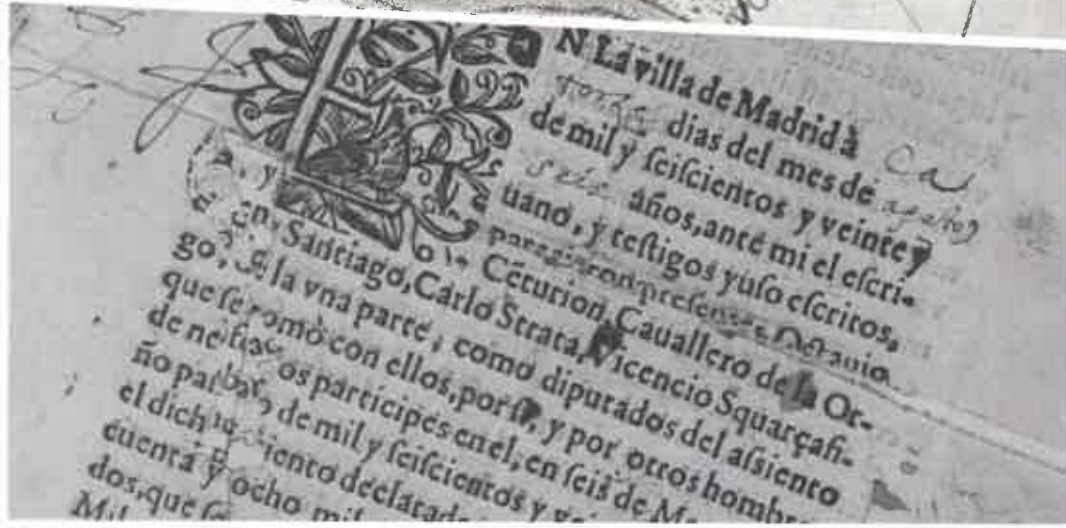 N La villa de Madrid à Ca
torze dias del mes de agosto
de mil y ſeiſcientos y veinte y
seis años, ante mi el eſcri-
uano, y teſtigos yuſo eſcritos,
parecieron preſentes Octauio
Cẽturion, Cauallero de la Or-
en, Santiago, Carlo Strata, Vicencio Squarçafi-
go, la vna parte, como diputados del aſsiento
que ſe tomò con ellos, por ſi, y por otros hombre
de ne os participes en el, en ſeis de Ma
ño pa de mil y ſeiſcientos y vei
el dich iento declarad
cuenta y ocho mil
dos, que ſe
Mil